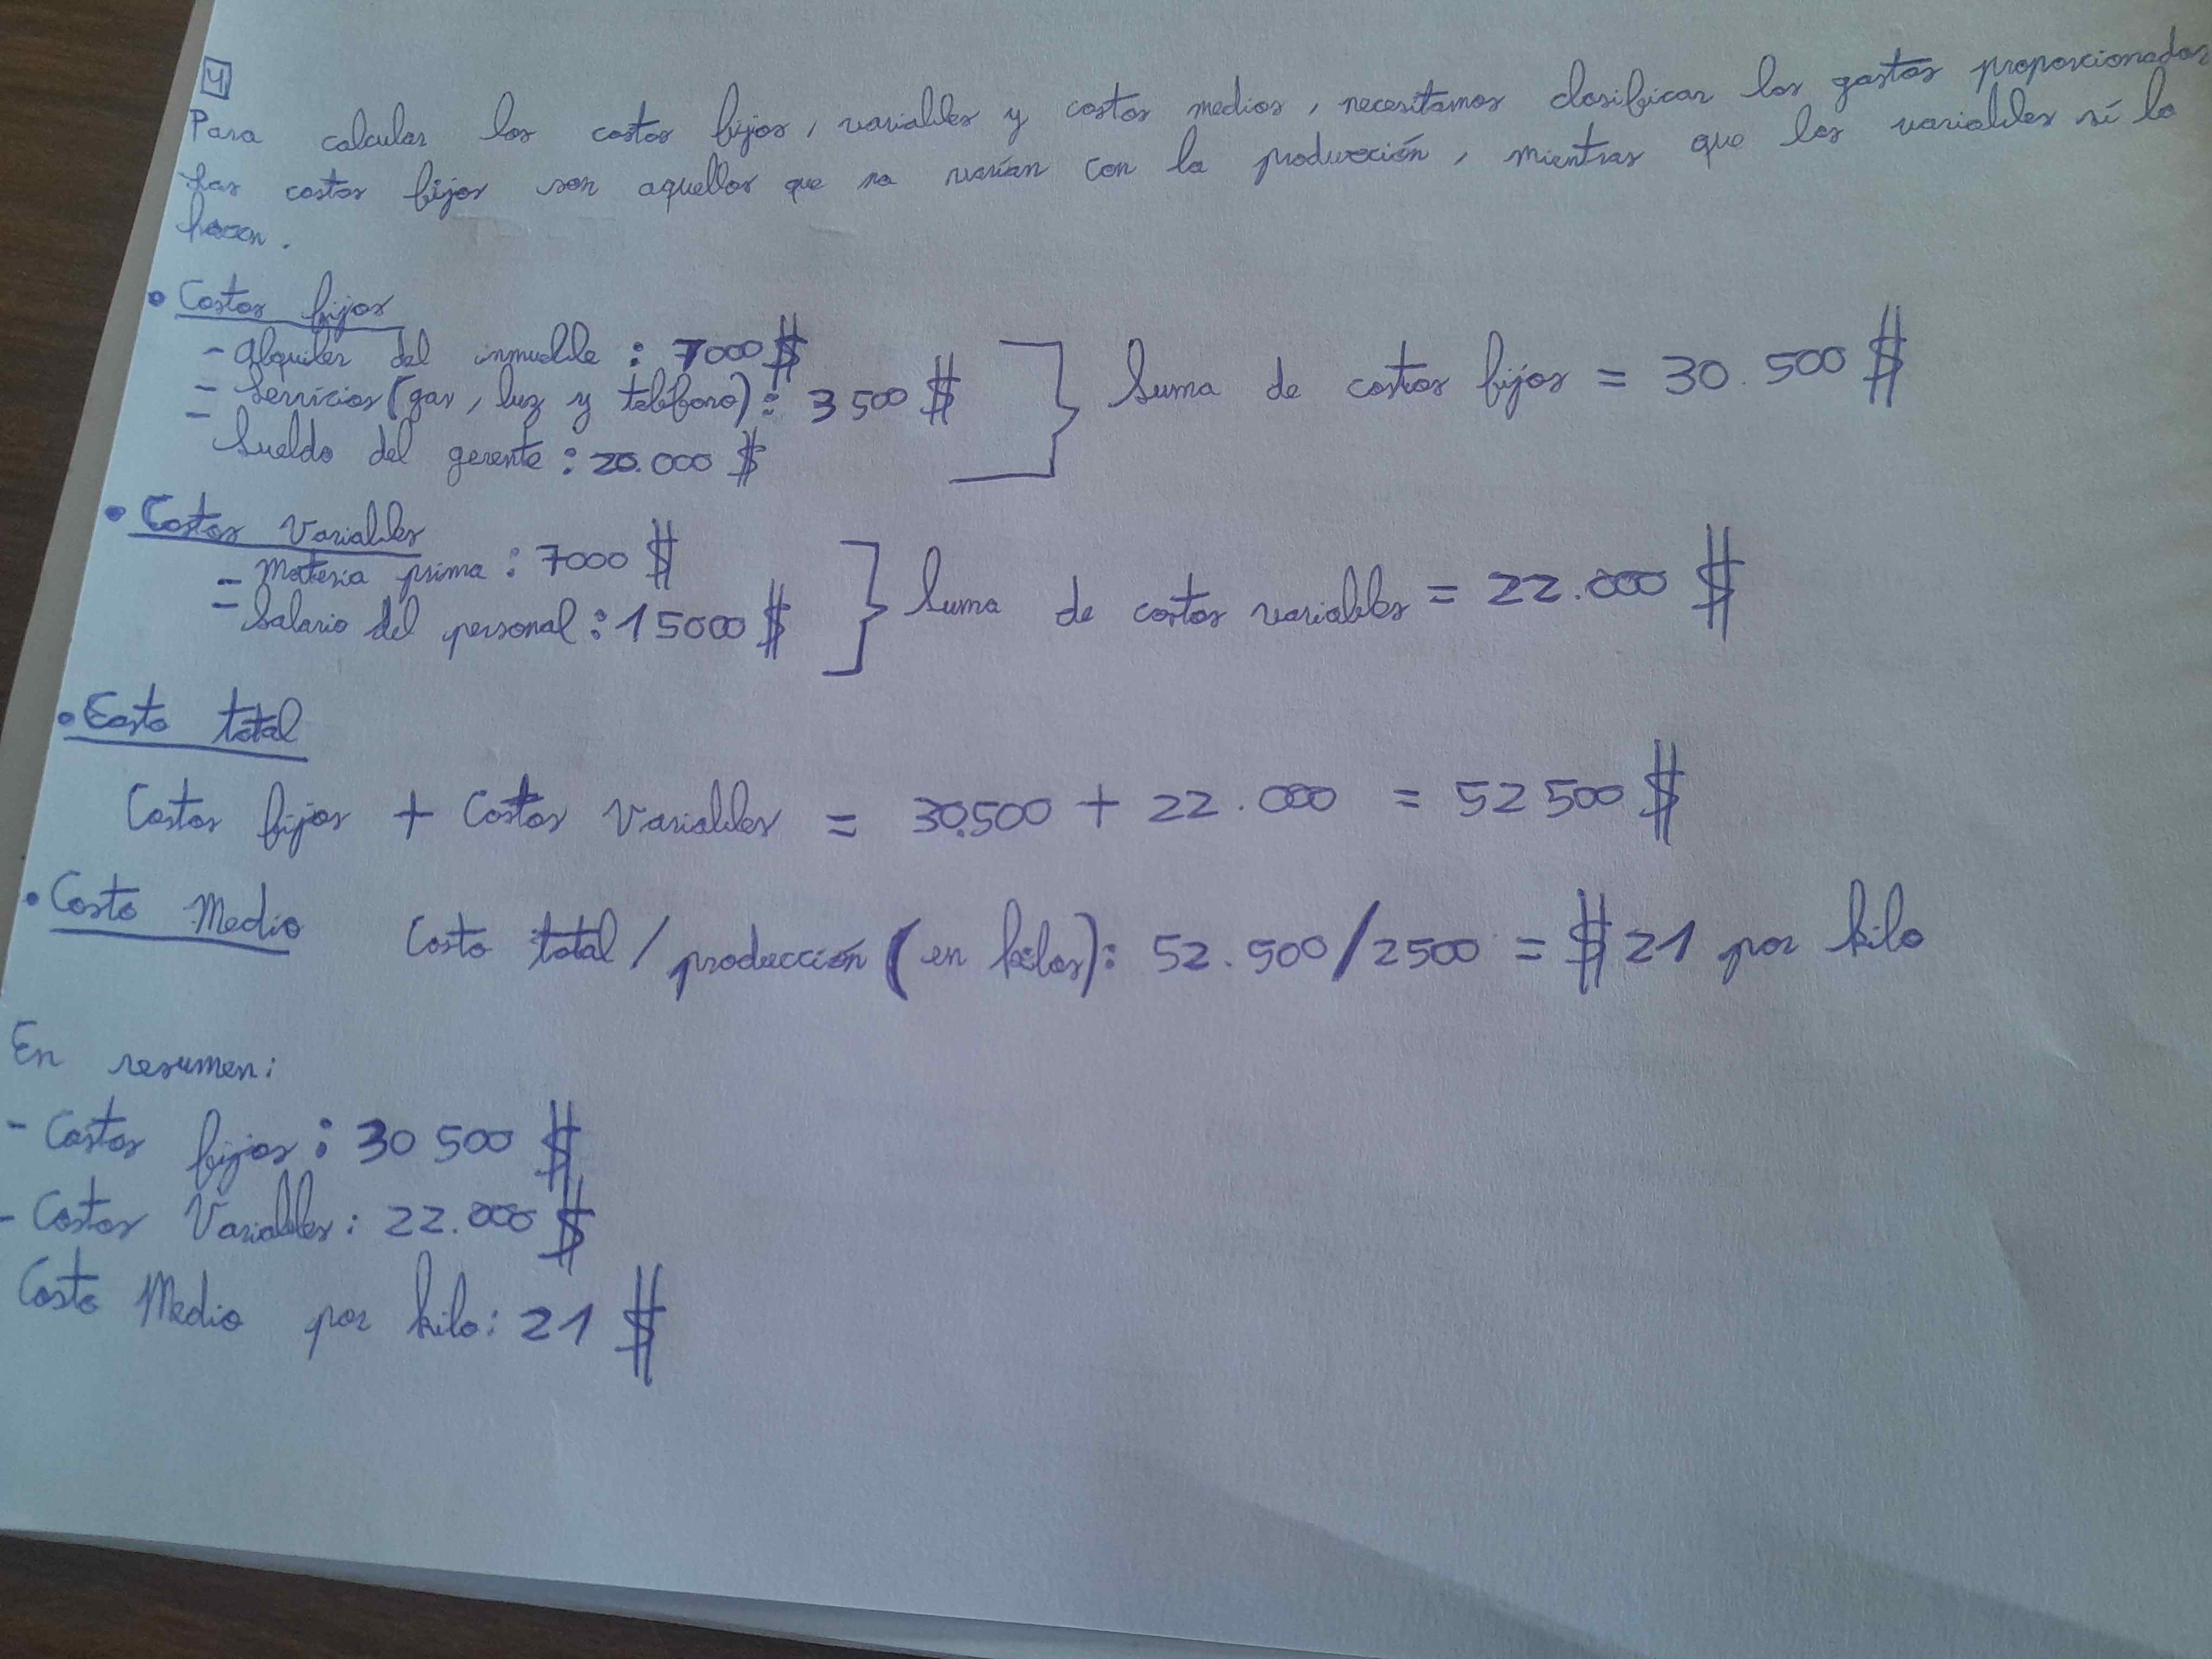 4
Para calcular los costos fijos, variables y costos medios, necesitamos clasificar los gastos proporcionados
Los costos fijos son aquellos que no varían con la producción, mientras que los variables sí lo
hacen.
• Costos fijos
- Alquiler del inmueble : 7000 $
- Servicios (gas, luz y teléfono) : 3 500 $
- Sueldo del gerente : 20.000 $
Suma de costos fijos = 30.500 $
• Costos Variables
- Materia prima : 7000 $
- Salario del personal : 15000 $
Suma de costos variables = 22.000 $
• Costo total
Costos fijos + Costos Variables = 30.500 + 22.000 = 52 500 $
• Costo Medio Costo total / producción (en kilos): 52.500/2500 = $ 21 por kilo
En resumen:
- Costos fijos : 30 500 $
- Costos Variables : 22.000 $
Costo Medio por kilo: 21 $